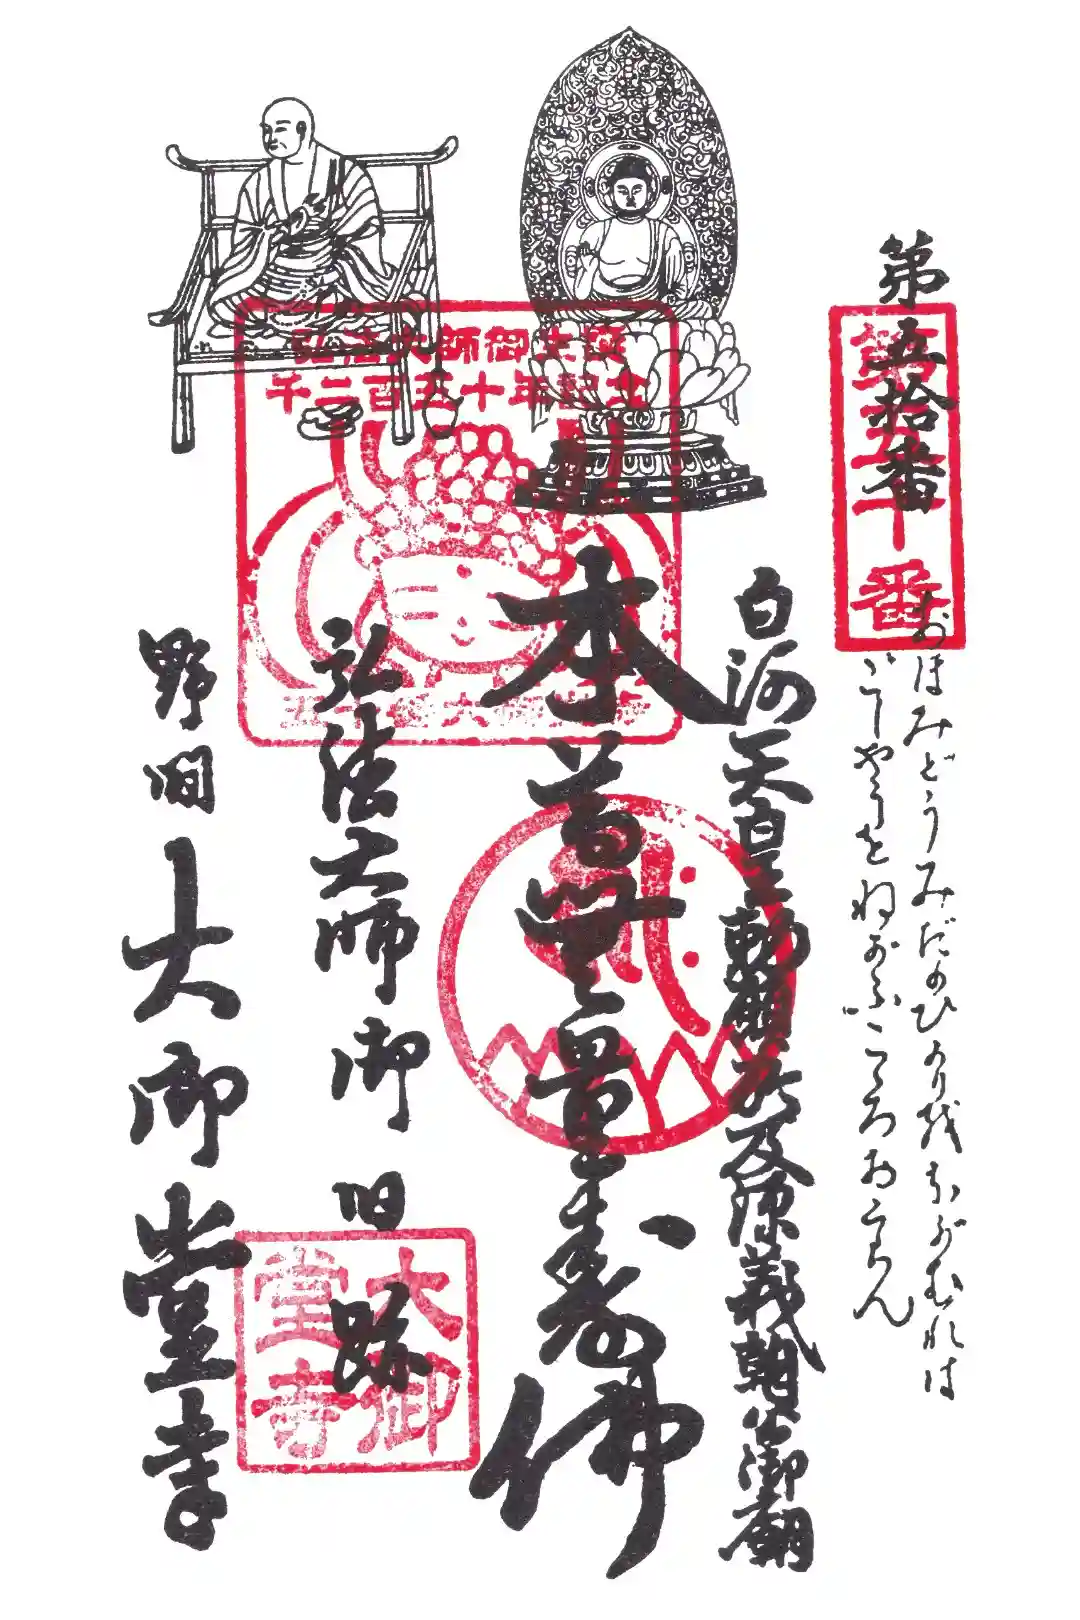 第五拾番
第五十番
おほみどうみだのひかり越あがむれば
ごしやうをねがふこころおこらん
白河天皇勅願所及源義朝公御廟
本尊無量寿佛
弘法大師御旧跡
野間大御堂寺
弘法大師御生誕
千二百五十年記念
大御
堂寺